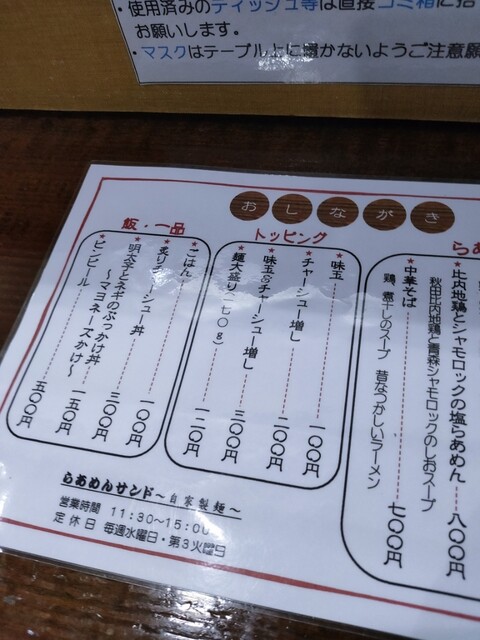 ・使用済みのティッシュ等は直接ゴミ箱に
お願いします。
・マスクはテーブル上に置かないようご注意願
おしながき
らぁ
★比内地鶏とシャモロックの塩らぁめん 八〇〇円
秋田比内地鶏と青森シャモロックのしおスープ
★中華そば 七〇〇円
鶏、煮干しのスープ 昔なつかしいラーメン
トッピング
★味玉 一〇〇円
★チャーシュー増し 二〇〇円
★味玉&チャーシュー増し 三〇〇円
★麺大盛り(二七〇g) 一二〇円
飯・一品
★ごはん 一〇〇円
★炙りチャーシュー丼 三〇〇円
★明太子とネギのぶっかけ丼
〜マヨネーズかけ〜
★ビンビール 五〇〇円
らぁめんサンド〜自家製麺〜
営業時間 11:30〜15:00
定休日 毎週水曜日・第3火曜日